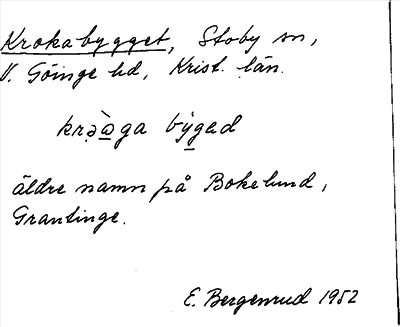 Krokabygget, Stoby sn,
V. Göinge hd, Krist. län.
krə̣àga býgəd
äldre namn på Bokelund,
Grantinge.
E. Bergenrud 1952